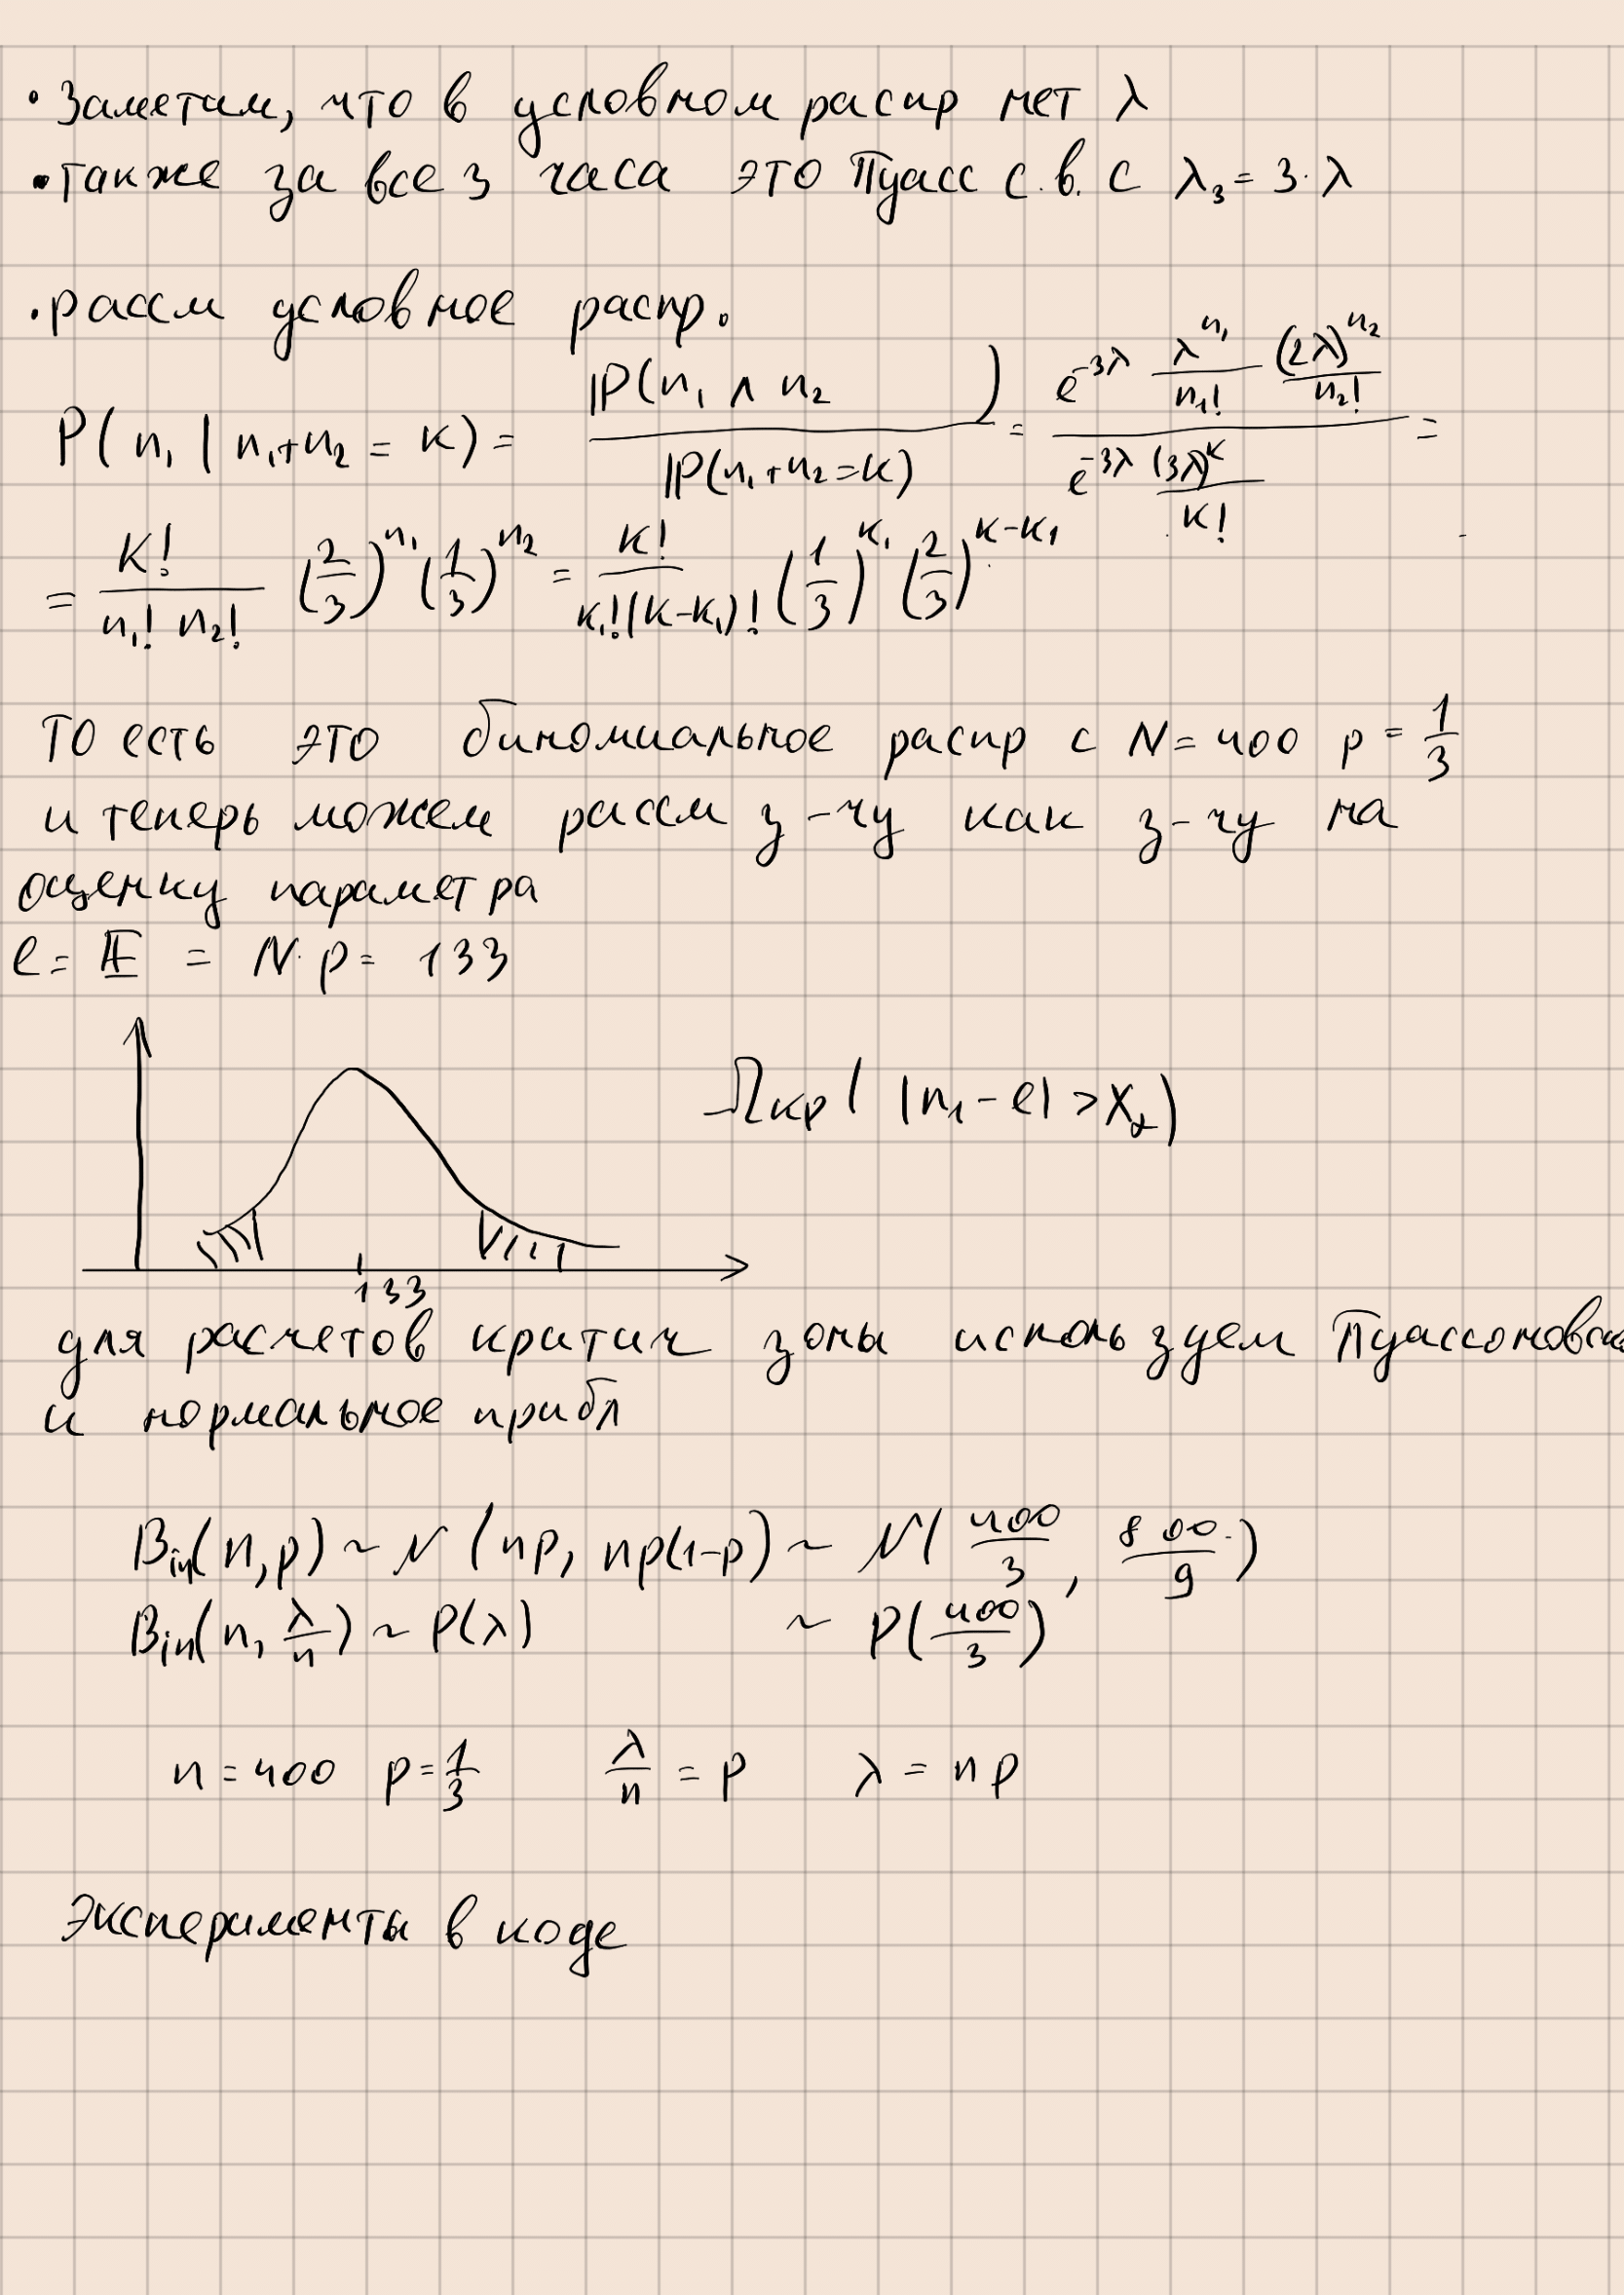 • Заметим, что в условном распр нет λ
• также за все 3 часа это Пуасс с.в. с λ₃ = 3·λ
• рассм условное распр.
P(n₁ | n₁+n₂ = K) = ℙ(n₁ ∧ n₂ ) / ℙ(n₁+n₂=K) = e^{-3λ} λ^{n₁}/n₁! (2λ)^{n₂}/n₂! / e^{-3λ} (3λ)^K/K! =
= K!/(n₁! n₂!) (2/3)^{n₁} (1/3)^{n₂} = K!/(K₁!(K-K₁)!) (1/3)^{K₁} (2/3)^{K-K₁}
то есть это биномиальное распр с N = 400 p = 1/3
и теперь можем рассм з-чу как з-чу на
оценку параметра
l = 𝔼 = N·p = 133
Ωкр( |n₁ - l| > X_α )
133
для расчетов критич зоны используем Пуассоновское
и нормальное прибл
Bin(n, p) ~ N(np, np(1-p)) ~ N(400/3, 800/9)
Bin(n, λ/n) ~ P(λ) ~ P(400/3)
n = 400 p = 1/3 λ/n = p λ = np
Эксперименты в коде